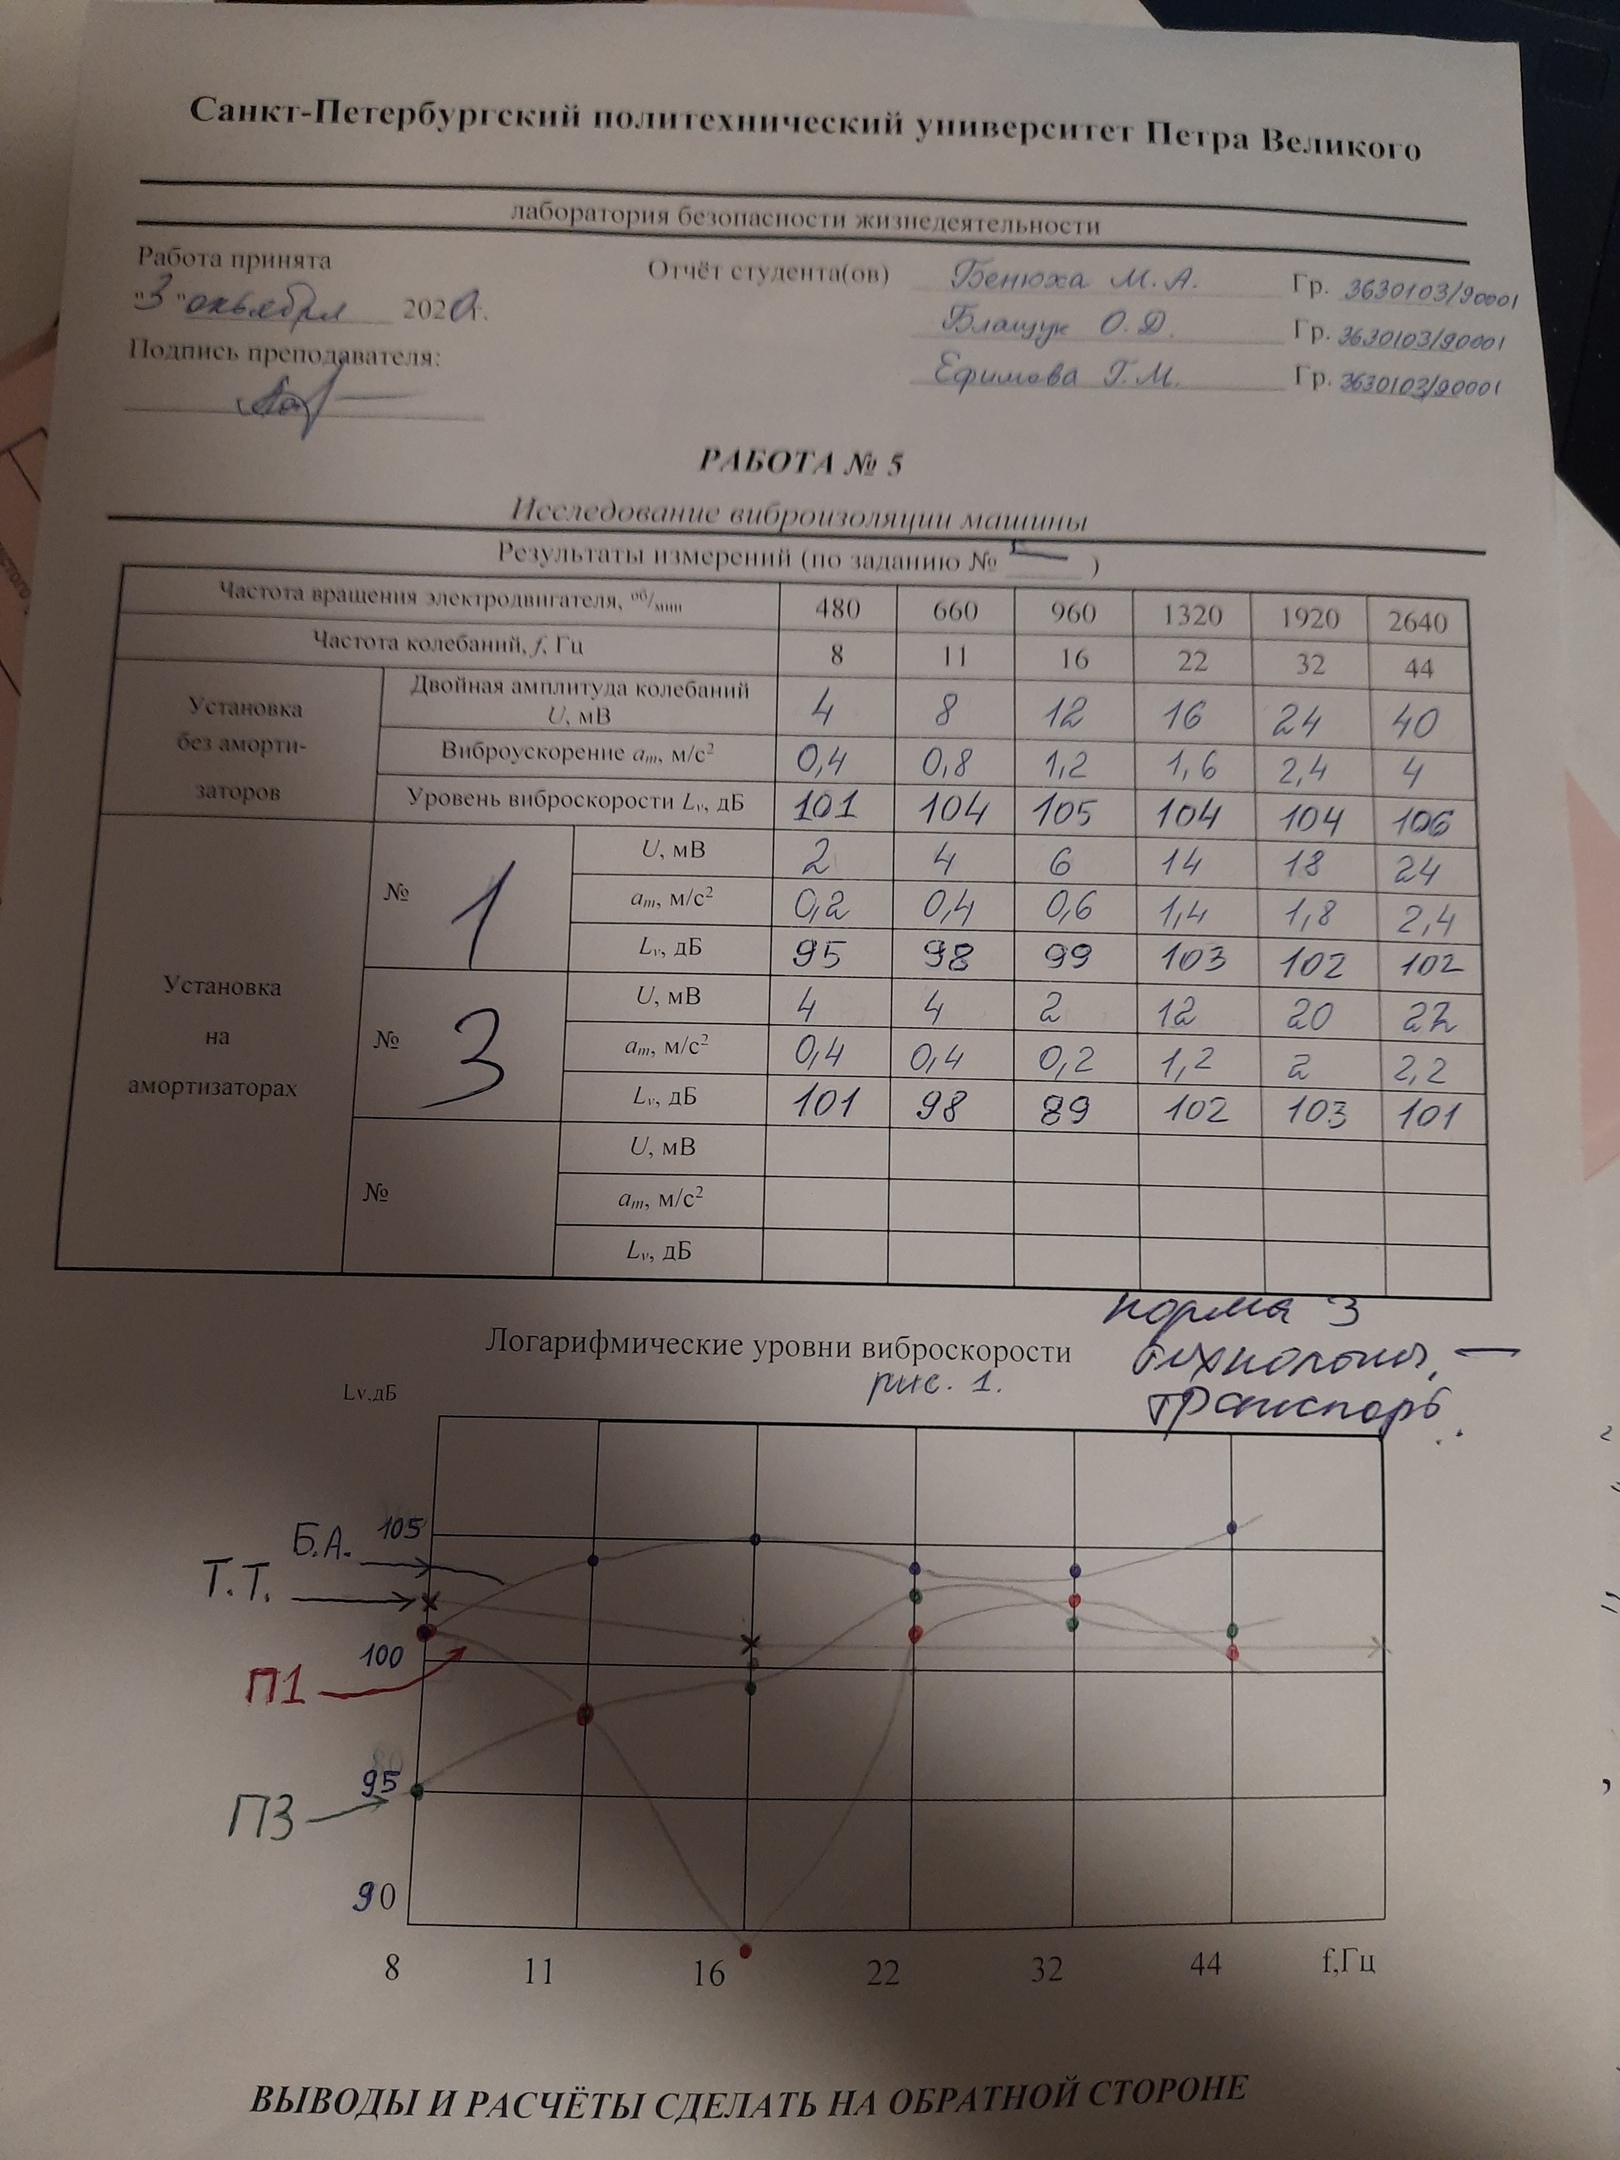 Санкт-Петербургский политехнический университет Петра Великого
лаборатория безопасности жизнедеятельности
Работа принята
"3" октября 2020г.
Подпись преподавателя:
Отчёт студента(ов) Бенюха М.А. Гр. 3630103/90001
Блащук О.Д. Гр. 3630103/90001
Ефимова Г.М. Гр. 3630103/90001
РАБОТА № 5
Исследование виброизоляции машины
Результаты измерений (по заданию № )
Частота вращения электродвигателя, об/мин 480 660 960 1320 1920 2640
Частота колебаний, f, Гц 8 11 16 22 32 44
Установка без аморти-заторов
Двойная амплитуда колебаний U, мВ 4 8 12 16 24 40
Виброускорение am, м/с² 0,4 0,8 1,2 1,6 2,4 4
Уровень виброскорости Lv, дБ 101 104 105 104 104 106
Установка на амортизаторах
№ 1
U, мВ 2 4 6 14 18 24
am, м/с² 0,2 0,4 0,6 1,4 1,8 2,4
Lv, дБ 95 98 99 103 102 102
№ 3
U, мВ 4 4 2 12 20 22
am, м/с² 0,4 0,4 0,2 1,2 2 2,2
Lv, дБ 101 98 89 102 103 101
№
U, мВ
am, м/с²
Lv, дБ
норма 3
технолог. –
транспорт.
Логарифмические уровни виброскорости
рис. 1.
Lv,дБ
105
Б.А.
Т.Т.
100
П1
95
П3
90
8 11 16 22 32 44 f,Гц
ВЫВОДЫ И РАСЧЁТЫ СДЕЛАТЬ НА ОБРАТНОЙ СТОРОНЕ